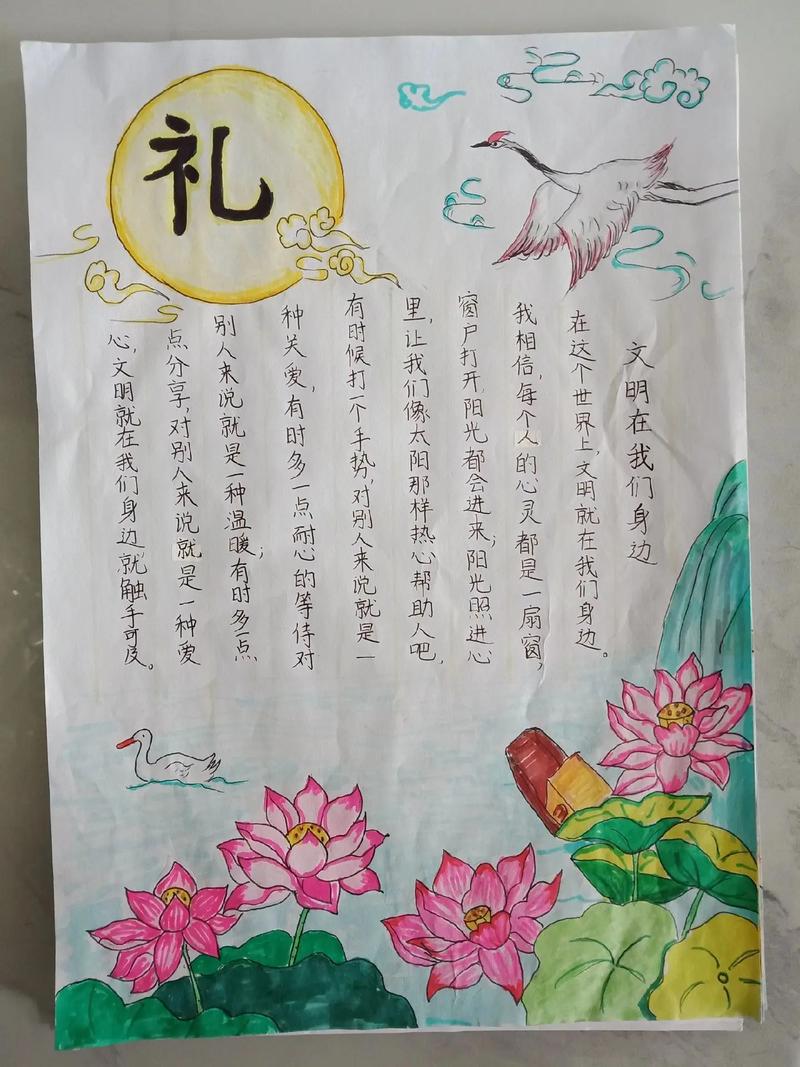 礼
文明在我们身边
在这个世界上，文明就在我们身边。
我相信，每个人的心灵都是一扇窗，
窗户打开，阳光都会进来；阳光照进心
里，让我们像太阳那样热心帮助人吧，
有时候打一个手势，对别人来说就是一
种关爱，有时多一点耐心的等待对
别人来说就是一种温暖；有时多一点
点分享，对别人来说就是一种爱
心，文明就在我们身边，就触手可及。